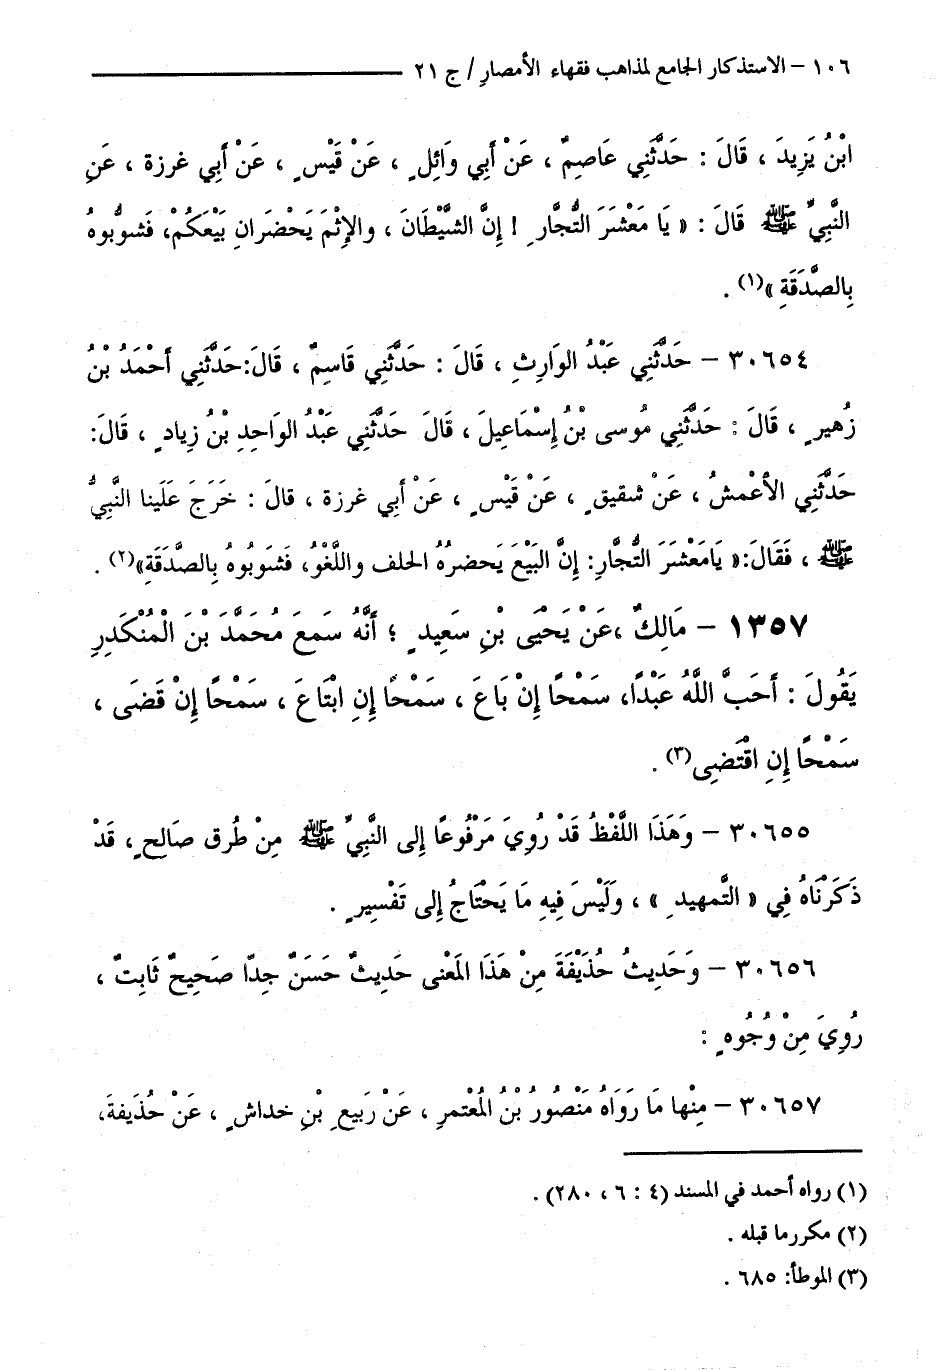 ١٠٦ – الاستذكار الجامع لمذاهب فقهاء الأمصار / ج ٢١
ابْنُ يَزِيدَ ، قَالَ : حَدَّثَنِي عَاصِمٌ ، عَنْ أَبِي وَائِلٍ ، عَنْ قَيْسٍ ، عَنْ أَبِي غرزة ، عَنِ
النَّبِيِّ ﷺ قَالَ : « يَا مَعْشَرَ التُّجَّارِ ! إِنَّ الشَّيْطَانَ ، والإِثْمَ يَحْضَرَانِ بَيْعَكُمْ، فَشوبُّوهُ
بِالصَّدَقَةِ »(١) .
٣٠٦٥٤ – حَدَّثَنِي عَبْدُ الوَارِثِ ، قَالَ : حَدَّثَنِي قَاسِمٌ ، قَالَ:حَدَّثَنِي أَحْمَدُ بْنُ
زُهيرٍ ، قَالَ : حَدَّثَنِي مُوسى بْنُ إِسْمَاعِيلَ ، قَالَ حَدَّثَنِي عَبْدُ الوَاحِدِ بْنُ زِيادٍ ، قَالَ:
حَدَّثَنِي الأعْمشُ ، عَنْ شقيقٍ ، عَنْ قَيْسٍ ، عَنْ أَبِي غرزة ، قالَ : خَرَجَ عَلَينا النَّبِيُّ
ﷺ ، فَقَالَ:« يَامَعْشَرَ التُّجَّارِ: إِنَّ البَيْعَ يَحضرُهُ الحلف واللَّغْوُ، فَشوَبُوهُ بِالصَّدَقَةِ»(٢) .
١٣٥٧ – مَالِكٌ ،عَنْ يَحْيَى بْنِ سَعِيدٍ ؛ أَنَّهُ سَمعَ مُحَمَّدَ بْنَ الْمُنْكَدِرِ
يَقُولَ : أَحَبَّ اللَّهُ عَبْدًا، سَمْحًا إِنْ بَاعَ ، سَمْحًا إِنِ ابْتَاعَ ، سَمْحًا إِنْ قَضَى ،
سَمْحًا إِنِ اقْتَضِى(٣) .
٣٠٦٥٥ – وَهَذَا اللَّفْظُ قَدْ رُوِيَ مَرْفُوعًا إِلى النَّبِيِّ ﷺ مِنْ طُرق صَالِحٍ، قَدْ
ذَكَرْنَاهُ فِي « التَّمهيدِ » ، وَلَيْسَ فِيهِ مَا يَحْتَاجُ إِلى تَفْسِيرٍ .
٣٠٦٥٦ – وَحَدِيثُ حُذَيْفَةَ مِنْ هَذَا المَعْنى حَدِيثٌ حَسَنٌ جِدًا صَحِيحٌ ثَابِتٌ ،
رُوِيَ مِنْ وُجُوهٍ :
٣٠٦٥٧ – مِنْها مَا رَوَاهُ مَنْصُورُ بْنُ المُعْتمرِ ، عَنْ رَبِيعِ بْنِ خداشٍ ، عَنْ حُذَيفةَ،
(١) رواه أحمد في المسند (٤ : ٦ ، ٢٨٠) .
(٢) مكررما قبله .
(٣) الموطأ: ٦٨٥ .